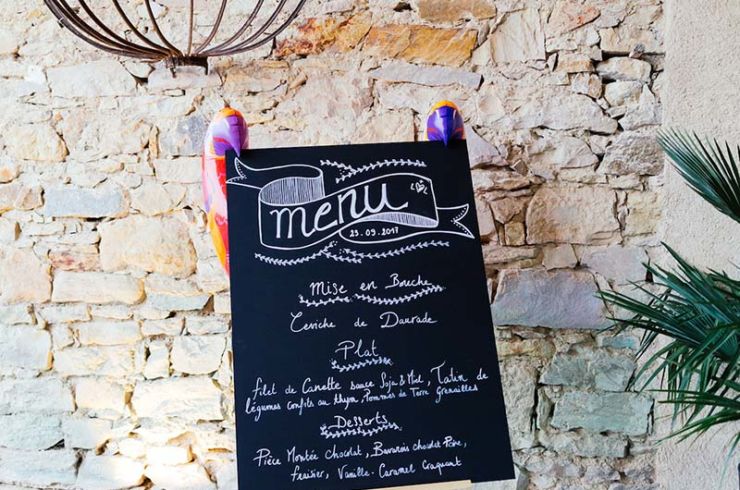 menu
23.09.2017
Mise en Bouche
Ceviche de Daurade
Plat
filet de Canette sauce Soja & Miel, Tatin de
légumes confits au thym, Pommes de Terre Grenailles
Desserts
Pièce Montée chocolat, Bavarois chocolat Poire,
fraisier, Vanille-Caramel Craquant